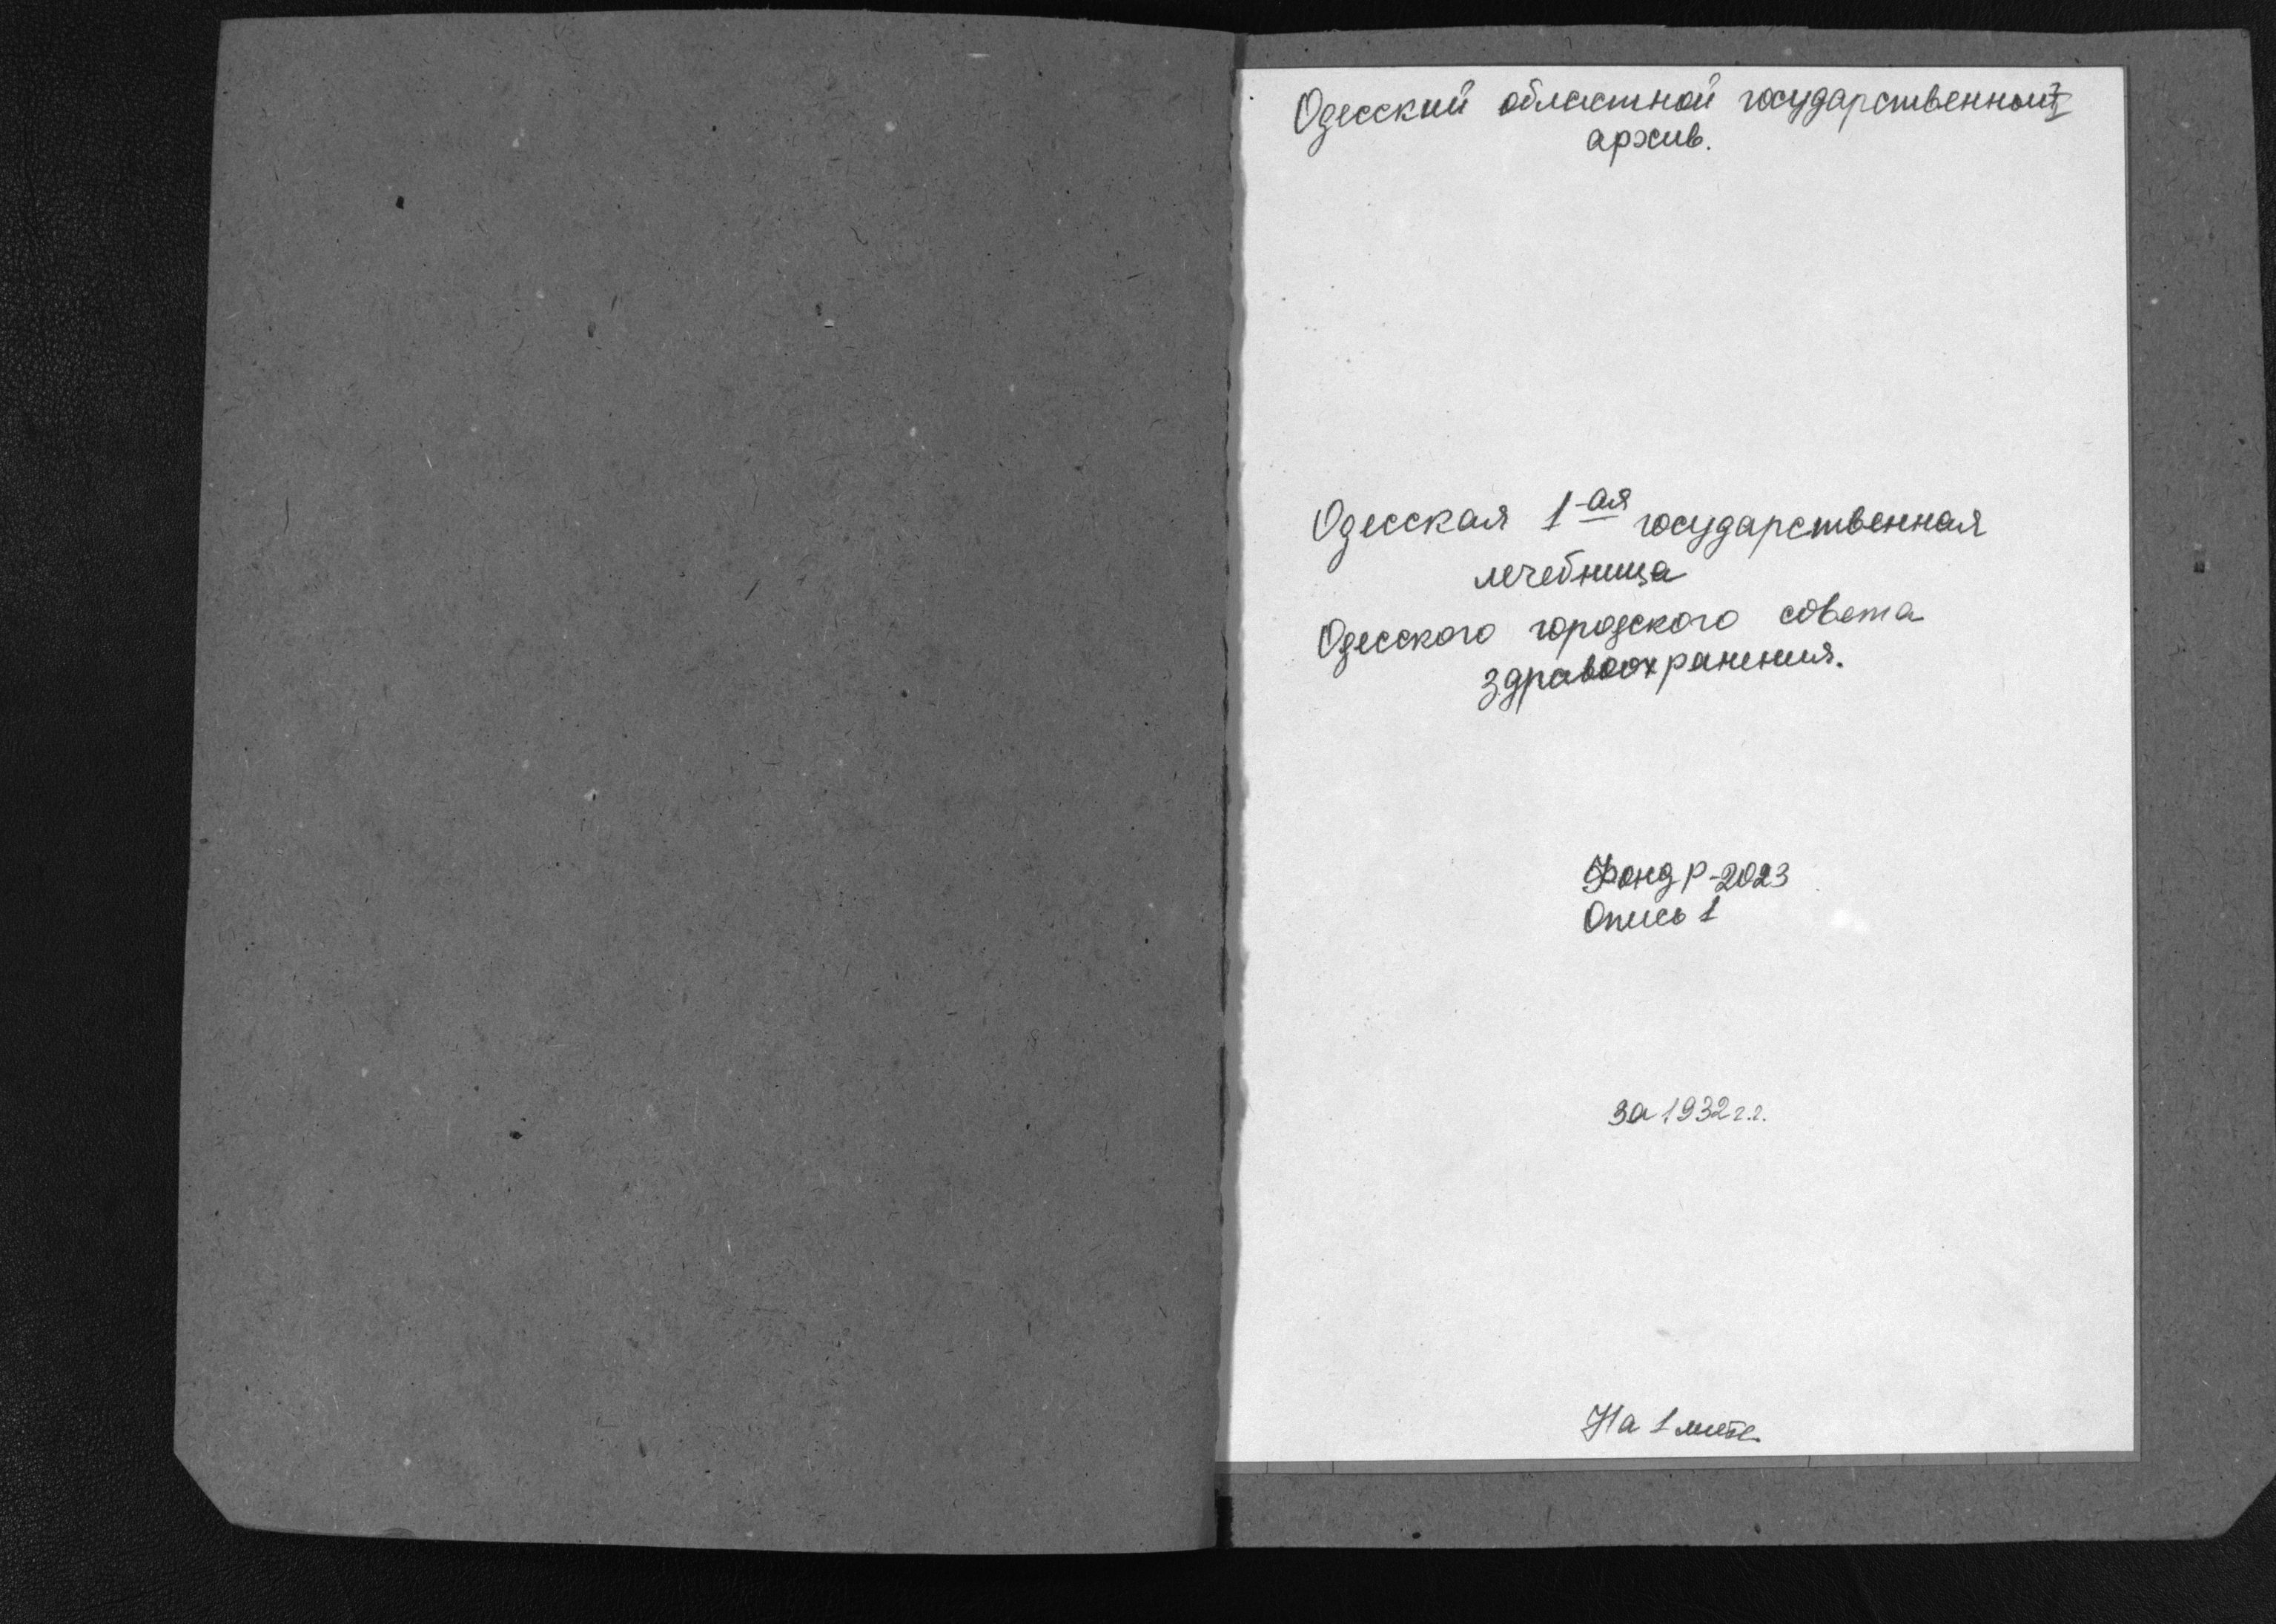 Одесский областной государственный
архив.
Одесская 1-ая государственная
лечебница
Одесского городского совета
здравоохранения.
Фонд Р-2023
Опись 1
за 1932 г.г.
На 1 листе